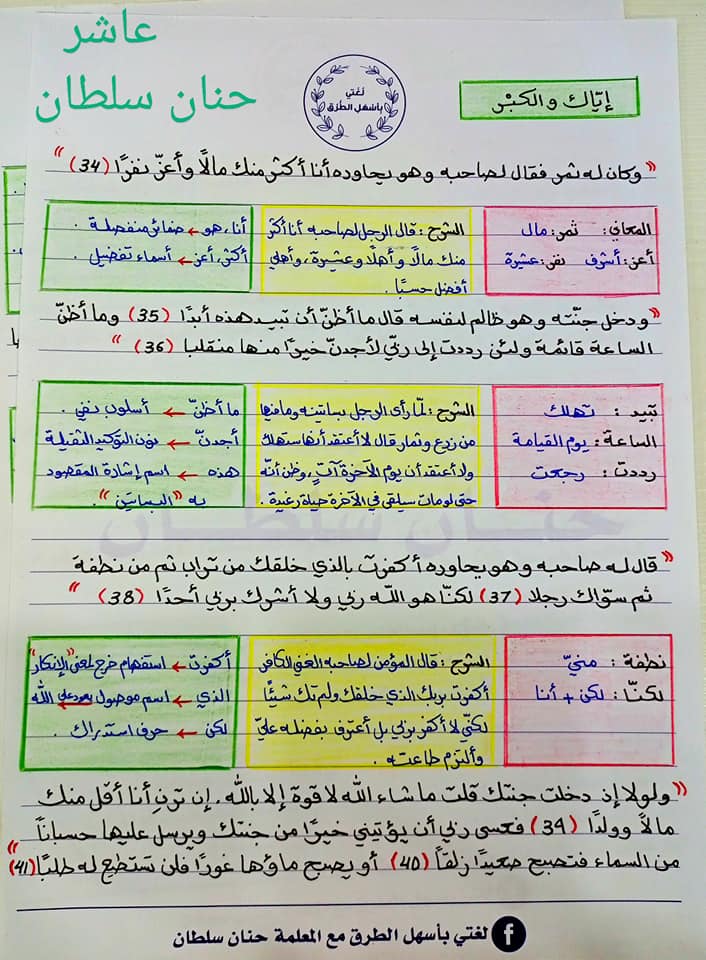 عاشر
حنان سلطان
لغتي
بأسهل الطرق
إيّاك والكبْر
" وكان له ثمر فقال لصاحبه وهو يحاوره أنا أكثر منك مالًا وأعزّ نفرًا (34) "
المعاني: ثمر: مال
أعز: أشرف نفر: عشيرة
الشرح: قال الرجل لصاحبه أنا أكثر
منك مالًا وأهلًا وعشيرة، وأهلي
أفضل حسبًا.
أنا، هو ← ضمائر منفصلة.
أكثر، أعز ← أسماء تفضيل.
" ودخل جنّته وهو ظالم لنفسه قال ما أظنّ أن تبيد هذه أبدًا (35) وما أظنّ
الساعة قائمة ولئن رددت إلى ربّي لأجدنّ خيرًا منها منقلبا (36) "
تبيد: تهلك
الساعة: يوم القيامة
رددت: رجعت
الشرح: لمّا رأى الرجل بساتينه وما فيها
من زرع وثمار قال لا أعتقد أنها ستهلك
ولا أعتقد أن يوم الآخرة آتٍ، وظن أنّه
حتى لو مات سيلقى في الآخرة حياة رغيدة.
ما أظنّ ← أسلوب نفي.
أجدنّ ← نون التوكيد الثقيلة
هذه ← اسم إشارة المقصود
به "البساتين".
حنان سلطان
" قال له صاحبه وهو يحاوره أكفرت بالذي خلقك من تراب ثم من نطفة
ثم سوّاك رجلا (37) لكنّا هو الله ربي ولا أشرك بربي أحدًا (38) "
نطفة: منيّ
لكنّا: لكن + أنا
الشرح: قال المؤمن لصاحبه الغني الكافر
أكفرت بربك الذي خلقك ولم تك شيئًا
لكنّي لا أكفر بربي بل أعترف بفضله عليّ
وألتزم طاعته.
أكفرت ← استفهام خرج لمعنى "الإنكار"
الذي ← اسم موصول يعود على الله
لكن ← حرف استدراك.
" ولولا إذ دخلت جنتك قلت ما شاء الله لا قوة إلا بالله، إن ترنِ أنا أقل منك
مالًا وولدًا (39) فعسى ربي أن يؤتيني خيرًا من جنتك ويرسل عليها حسباناً
من السماء فتصبح صعيدًا زلقاً (40) أو يصبح ماؤها غورًا فلن تستطيع له طلبًا (41) "
لغتي بأسهل الطرق مع المعلمة حنان سلطان